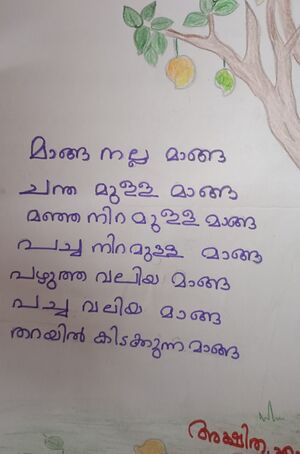 മാങ്ങ നല്ല മാങ്ങ
ചന്ത മുള്ള മാങ്ങ
മഞ്ഞ നിറ മുള്ള മാങ്ങ
പച്ച നിറമുള്ള മാങ്ങ
പഴുത്ത വലിയ മാങ്ങ
പച്ച വലിയ മാങ്ങ
തറയിൽ കിടക്കുന്ന മാങ്ങ
അക്ഷിത